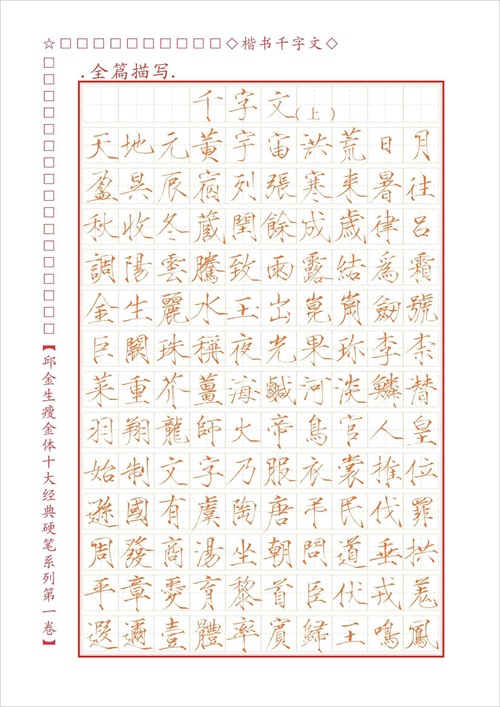 ☆□□□□□□□□□□□◇楷书千字文◇
.全篇描写.
千字文(上)
天地元黃宇宙洪荒日月
盈昃辰宿列張寒来暑往
秋收冬蔵閏餘成歳律吕
調陽雲騰致雨露結爲霜
金生麗水玉出崑崗劍號
巨闕珠稱夜光果珍李柰
菜重芥薑海鹹河淡鱗潜
羽翔龍師火帝鳥官人皇
始制文字乃服衣裳推位
遜國有虞陶唐弔民伐罪
周發商湯坐朝問道垂拱
平章愛育黎首臣伏戎羌
遐邇壹體率賓歸王鳴鳳
【邱金生瘦金体十大经典硬笔系列第一卷】